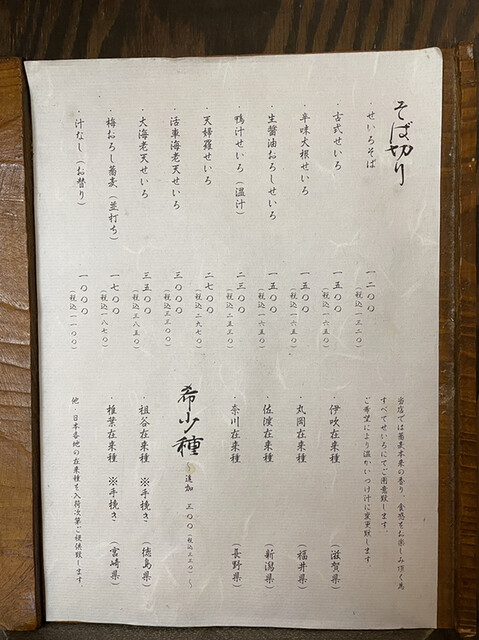 そば切り
・せいろそば 一二〇〇
(税込一三二〇)
・古式せいろ 一五〇〇
(税込一六五〇)
・辛味大根せいろ 一五〇〇
(税込一六五〇)
・生醤油おろしせいろ 一五〇〇
(税込一六五〇)
・鴨汁せいろ(温汁) 二三〇〇
(税込二五三〇)
・天婦羅せいろ 二七〇〇
(税込二九七〇)
・活車海老天せいろ 三〇〇〇
(税込三三〇〇)
・大海老天せいろ 三五〇〇
(税込三八五〇)
・梅おろし蕎麦(並打ち) 一七〇〇
(税込一八七〇)
・汁なし(お替り) 一〇〇〇
(税込一一〇〇)
当店では蕎麦本来の香り、食感をお楽しみ頂く為
すべてせいろにてご用意致します。
ご希望により温かいつけ汁に変更致します。
・伊吹在来種 (滋賀県)
・丸岡在来種 (福井県)
・佐渡在来種 (新潟県)
・奈川在来種 (長野県)
希少種 ~追加 三〇〇(税込三三〇)~
・祖谷在来種 ※手挽き (徳島県)
・椎葉在来種 ※手挽き (宮崎県)
他、日本各地の在来種を入荷次第ご提供致します。